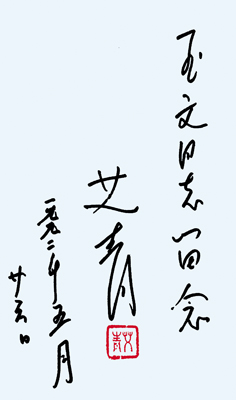 玉文同志留念
艾青
艾青
一九九二年五月
廿六日